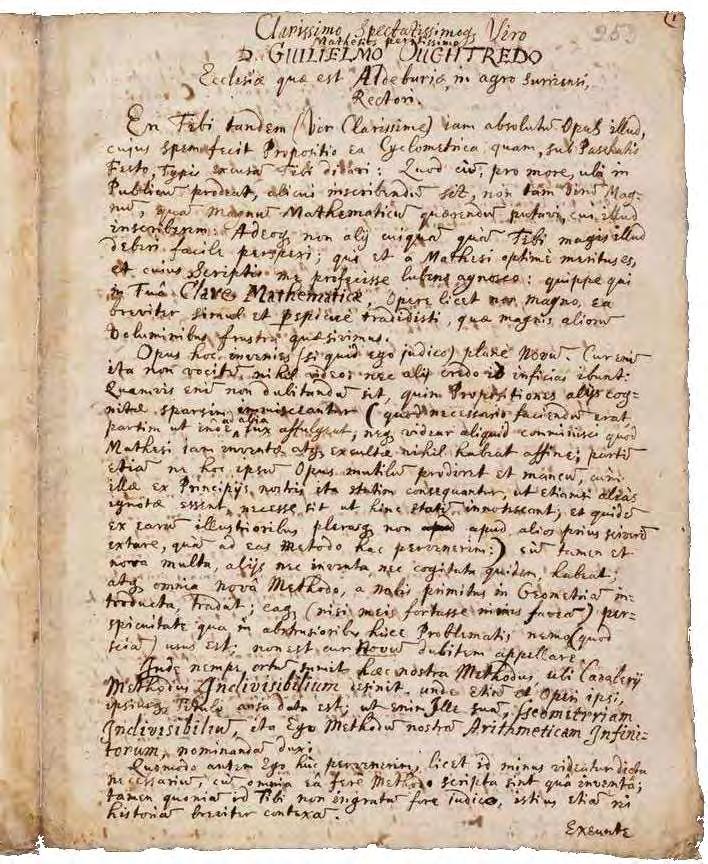 253
Clarissimo Spectatissimoq; Viro
Matheseos peritissimo
D. GUILIELMO OUGHTREDO
Ecclesiæ quæ est Aldeburiæ, in agro Surriensi,
Rectori.
En Tibi tandem (Vir Clarissime) iam absolutū Opus illud,
cujus spem fecit Propositio ea Cyclometrica quam, sub Paschatis
Festo, typis excusā Tibi dicavi: Quod cū, pro more, ubi in
Publicū prodeat, alicui inscribendū sit, non tam virū Mag-
nū, quā magnū Mathematicū quærendū putavi, cui illud
inscriberem: Adeoq; non alij cuiquā quā Tibi magis illud
deberi facile perspexi; qui et a Mathesi optime meritus es,
et cuius Scriptis me profecisse lubens agnosco: quippe qui
in Tuâ Clave Mathematicæ, Opere licet non magno, ea
breviter simul et perspicue tradidisti, quæ magnis aliorū
Voluminibus frustra quæsivimus.
Opus hoc invenies (si quid ego judico) plane Novū. Cur enī
ita non vocitē, nihil video; nec alij credo id inficias ibunt:
Quamvis enī non dubitandū sit, quin Propositiones aliæ cog-
nitæ sparsim immisceantur (quod necessario faciendū erat
partim ut inde ad alia lux affulgeat, neq; videar aliquid comminisci quod
Mathesi iam inventæ atq; excultæ nihil habeat affine; partī
etiā ne hoc ipsū Opus mutilū prodiret et mancū, cum
illæ ex Principijs nostris ita statim consequantur, ut etiamsi aliàs
ignotæ essent, necesse sit ut hinc statī innotescant; et quidē
ex earū illustrioribus plerasq; non apud alios prius sciverim
extare, quā ad eas Methodo hac pervenerim:) cū tamen et
nova multa, alijs nec inventa nec cogitata quidem, habeat;
atq; omnia novâ Methodo, a nobis primitus in Geometriā in-
troductâ, tradat; eaq; (nisi meis fortasse nimis faveā) per-
spicuitate quâ in abstrusioribus hisce Problematis nemo (quod
sciā) usus est; non est cur Novū dubitem appellare
Inde nempe ortū sumit hæc nostra Methodus, ubi Cavalerij
Methodus Indivisibilium desinit. unde etiā et Operi ipsi,
ipsiusq; Titulo ansa data est; ut enim Ille suā, Geometriam
Indivisibiliū, ita Ego Methodū nostrā Arithmeticam Infini-
torum, nominandā duxi.
Quomodo autem Ego huc pervenerim, licet id minus videatur dictu
necessariū, cū omnia eâ ferè Methodo scripta sint quâ inventa;
tamen quoniā id Tibi non ingratū fore Iudico, istius etiā rei
historiā breviter contexā.
Exeunte